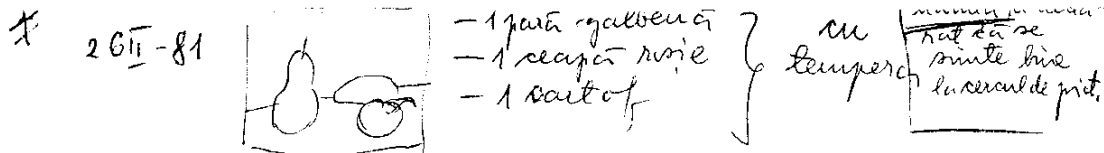 26 II - 81
- 1 pară galbenă
- 1 ceapă roșie
- 1 cartof
cu
tempera
că se
simte bine
la cercul de pict.